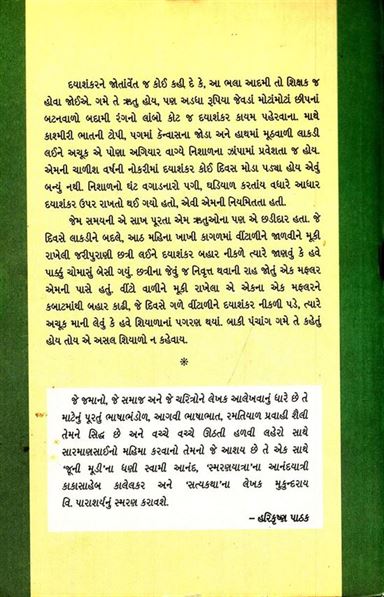 દયાશંકરને જોતાંવેંત જ કોઈ કહી દે કે, આ ભલા આદમી તો શિક્ષક જ
હોવા જોઈએ. ગમે તે ઋતુ હોય, પણ અડધા રૂપિયા જેવડાં મોટાંમોટાં છીપનાં
બટનવાળો બદામી રંગનો લાંબો કોટ જ દયાશંકર કાયમ પહેરવાના. માથે
કાશ્મીરી ભાતની ટોપી, પગમાં કેન્વાસના જોડા અને હાથમાં મૂઠવાળી લાકડી
લઈને અચૂક એ પોણા અગિયાર વાગ્યે નિશાળના ઝાંપામાં પ્રવેશતા જ હોય.
એમની ચાળીશ વર્ષની નોકરીમાં દયાશંકર કોઈ દિવસ મોડા પડ્યા હોય એવું
બન્યું નથી. નિશાળનો ઘંટ વગાડનારો પગી, ઘડિયાળ કરતાંય વધારે આધાર
દયાશંકર ઉપર રાખતો થઈ ગયો હતો, એવી એમની નિયમિતતા હતી.
જેમ સમયની એ સાખ પૂરતા એમ ઋતુઓના પણ એ છડીદાર હતા. જે
દિવસે લાકડીને બદલે, આઠ મહિના ખાખી કાગળમાં વીંટાળીને જાળવીને મૂકી
રાખેલી જરીપુરાણી છત્રી લઈને દયાશંકર બહાર નીકળે ત્યારે જાણવું કે હવે
પાક્કું ચોમાસું બેસી ગયું. છત્રીના જેવું જ નિવૃત્ત થવાની રાહ જોતું એક મફલર
એમની પાસે હતું. વીંટો વાળીને મૂકી રાખેલા એ એકના એક મફલરને
કબાટમાંથી બહાર કાઢી, જે દિવસે ગળે વીંટાળીને દયાશંકર નીકળી પડે, ત્યારે
અચૂક માની લેવું કે હવે શિયાળાનાં પગરણ થયાં. બાકી પંચાંગ ગમે તે કહેતું
હોય તોય એ અસલ શિયાળો ન કહેવાય.
*
જે જમાનો, જે સમાજ અને જે ચરિત્રોને લેખક આલેખવાનું ધારે છે તે
માટેનું પૂરતું ભાષાભંડોળ, આગવી ભાષાભાત, રમતિયાળ પ્રવાહી શૈલી
તેમને સિદ્ધ છે અને વચ્ચે વચ્ચે ઊઠતી હળવી લહેરો સાથે
સારમાણસાઈનો મહિમા કરવાનો તેમનો જે આશય છે તે એક સાથે
'જૂની મૂડી'ના ધણી સ્વામી આનંદ, 'સ્મરણયાત્રા'ના આનંદયાત્રી
કાકાસાહેબ કાલેલકર અને 'સત્યકથા'ના લેખક મુકુન્દરાય
વિ. પારાશર્યનું સ્મરણ કરાવશે.
– હરિકૃષ્ણ પાઠક